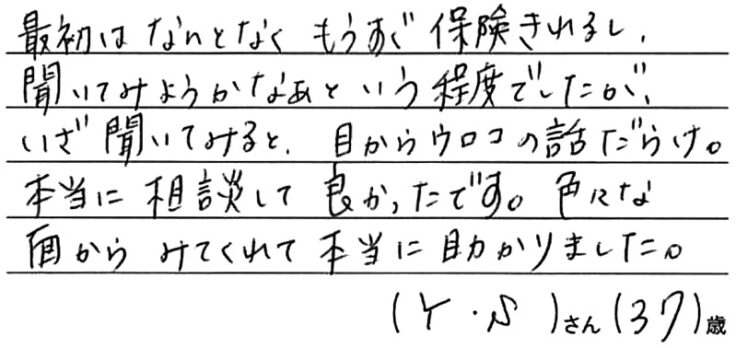 最初は なんとなく もうすぐ 保険きれるし、
聞いてみようかなぁと いう 程度でしたが、
いざ 聞いてみると、目からウロコの話だらけ。
本当に 相談して 良かったです。色々な
面から みてくれて 本当に 助かりました。
(Y・S)さん(37)歳